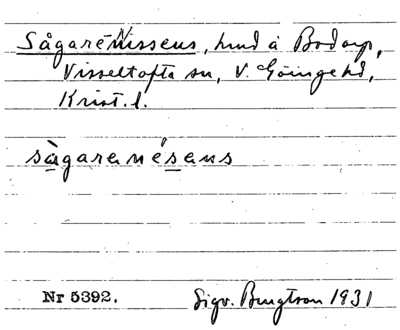 Sågaré Nissens, hmd å Bodarp,
Visseltofta sn, V. Göinge hd,
Krist. l.
sàgaranésans
Nr 5392.
Sigv. Bengtson 1931